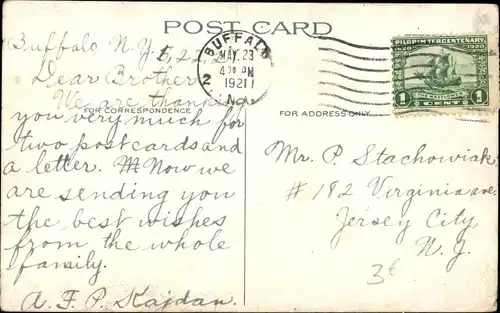 POST CARD
Buffalo, N.Y. 5, 22, 21
Dear Brother
We are thanking
FOR CORRESPONDENCE
you very much for
two postcards and
a letter. M Now we
are sending you
the best wishes
from the whole
family.
A. F. P. Kajdan.
BUFFALO
MAY 23
4 30 PM
1921
N.
2
PILGRIM TERCENTENARY
1620 1920
THE MAYFLOWER
1 CENT 1
FOR ADDRESS ONLY.
Mr. P Stachowiak
# 182 Virginia ave.
Jersey City
N. J.
3¢